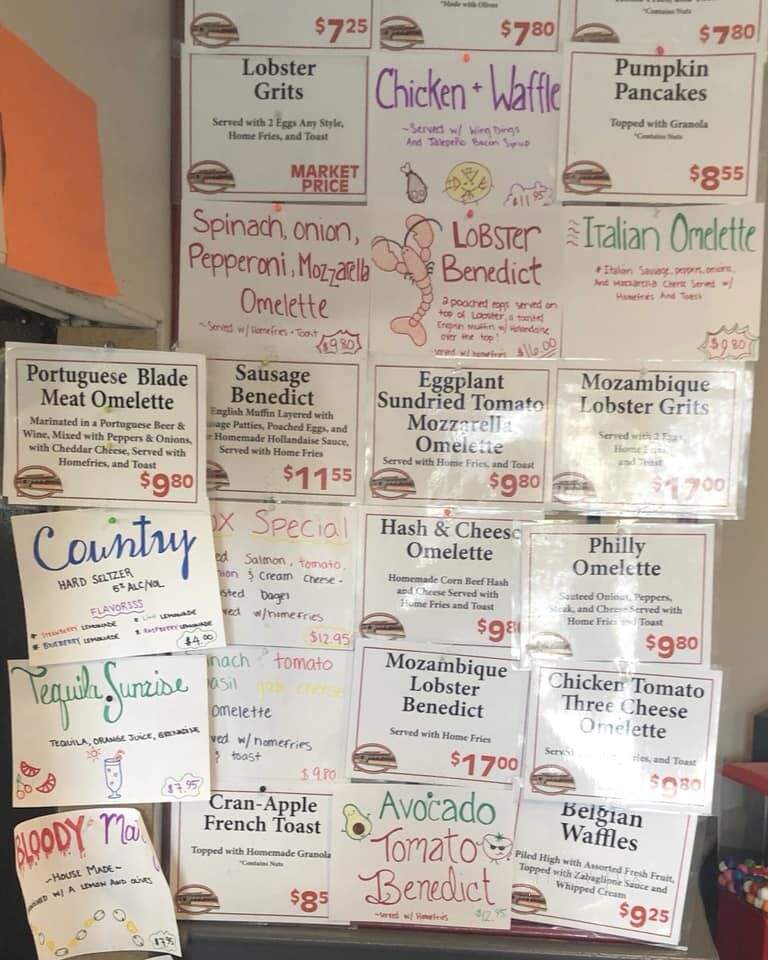 $7.25
"Made with Olives
$7.80
"Contains Nuts
$7.80
Lobster
Grits
Served with 2 Eggs Any Style,
Home Fries, and Toast
MARKET
PRICE
Chicken + Waffle
~Served w/ Wing Dings
And Jalepeño Bacon Syrup
$11.95
Pumpkin
Pancakes
Topped with Granola
*Contains Nuts
$8.55
Spinach, onion,
Pepperoni, Mozzarella
Omelette
~Served w/ Homefries + Toast
$9.80
LOBSTER
Benedict
2 poached eggs served on
top of Lobster, a toasted
English muffin w/ Holandaise
over the top!
served w/ homefries
$16.00
Italian Omelette
* Italian Sausage, peppers, onions,
And Mozzarella Cheese Served w/
Homefries And Toast
$9.80
Portuguese Blade
Meat Omelette
Marinated in a Portuguese Beer &
Wine, Mixed with Peppers & Onions,
with Cheddar Cheese, Served with
Homefries, and Toast
$9.80
Sausage
Benedict
English Muffin Layered with
age Patties, Poached Eggs, and
Homemade Hollandaise Sauce,
Served with Home Fries
$11.55
Eggplant
Sundried Tomato
Mozzarella
Omelette
Served with Home Fries, and Toast
$9.80
Mozambique
Lobster Grits
Served with 2 Eggs
Home Fries
and Toast
$17.00
Country
HARD SELTZER
5% ALC/VOL
FLAVORSSS
* STRAWBERRY LEMONADE
* LIME LEMONADE
* BLUEBERRY LEMONADE
* RASPBERRY LEMONADE
$4.00
ox Special
ed Salmon, tomato,
nion & Cream Cheese -
sted Bagel
ved w/homefries
$12.95
Hash & Cheese
Omelette
Homemade Corn Beef Hash
and Cheese Served with
Home Fries and Toast
$9.8
Philly
Omelette
Sauteed Onions, Peppers,
Steak, and Cheese Served with
Home Fries Toast
$9.80
Tequila Sunrise
TEQUILA, ORANGE JUICE, GRENADINE
$7.95
nach tomato
asil goat cheese
Omelette
ved w/ homefries
& toast
$9.80
Mozambique
Lobster
Benedict
Served with Home Fries
$17.00
Chicken Tomato
Three Cheese
Omelette
Serv ries, and Toast
$9.80
BLOODY Ma
~HOUSE MADE~
W/ A LEMON AND OLIVES
$7.95
Cran-Apple
French Toast
Topped with Homemade Granola
*Contains Nuts
$8
Avocado
Tomato
Benedict
~served w/ Homefries
$12.95
Belgian
Waffles
Piled High with Assorted Fresh Fruit,
Topped with Zabaglione Sauce and
Whipped Cream
$9.25